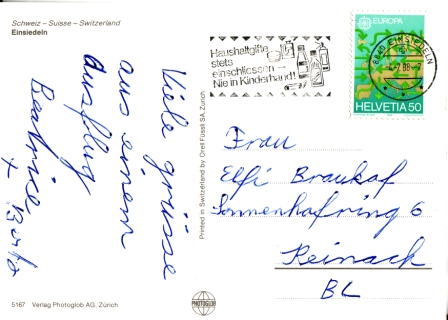 Schweiz – Suisse – Switzerland
Einsiedeln
Viele grüsse
aus einem
Ausflug
Beatrice,
+
5167 Verlag Photoglob AG, Zürich
Printed in Switzerland by Orell Füssli SA, Zürich
PHOTOGLOB
Haushaltgifte
stets
einschliessen –
Nie in Kinderhand!
8840 EINSIEDELN
EUROPA
HELVETIA 50
Frau
Elfi Braukaf
Sonnenhofring 6
Reinach
BL